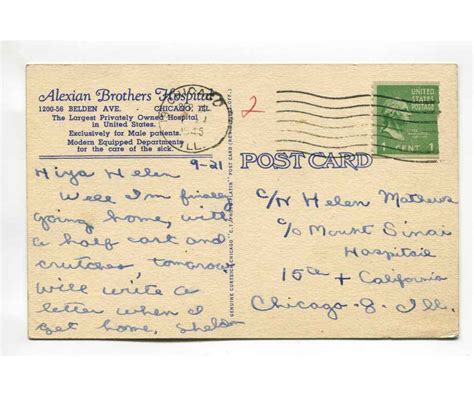 Alexian Brothers Hospital
1200-56 BELDEN AVE. CHICAGO, ILL.
The Largest Privately Owned Hospital
in United States.
Exclusively for Male patients.
Modern Equipped Departments
for the care of the sick.
CHICAGO
ILL.
2
UNITED
STATES
POSTAGE
1 CENT 1
POST CARD
9-21
Hiya Helen
Well I'm finally
going home, with
a half cast and
crutches, tomorrow,
Will write a
letter when I
get home, Sheldon
GENUINE CURTEICH-CHICAGO "C.T. POST CARD (REG. U.S. PAT. OFF.)
C/N Helen Mathews
c/o Mount Sinai
Hospital
15th + California
Chicago-8-Ill.